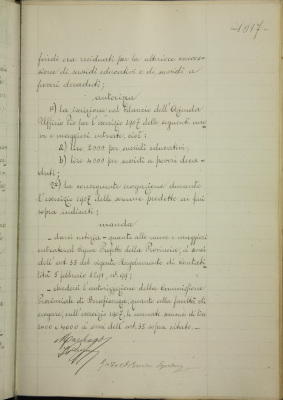 -1917-
fondi era residuati per la ulteriore conces-
sione di sussidi educativi e di sussidi a
poveri decaduti;
autorizza
1º) la iscrizione nel bilancio dell'Azienda
Ufficio Pio per l'esercizio 1917 delle seguenti nuo-
ve e maggiori entrate, cioè:
a) lire 2000 per sussidi educativi;
b) lire 4000 per sussidi a poveri deca-
duti;
2º) la conseguente erogazione durante
l'esercizio 1917 delle somme predette ai fini
sopra indicati;
manda
- darsi notizia - quanto alle nuove e maggiori
entrate al Signor Prefetto della Provincia, a sensi
dell'art. 55 del vigente Regolamento di Contabi-
lità 5 febbraio 1891, nº 99;
- chiedersi l'autorizzazione della Commissione
Provinciale di Beneficenza, quanto alla facoltà di
erogare, sull'esercizio 1917, le suavute somme di lire
2000 e 4000 a sensi dell'art. 55 sopra citato.